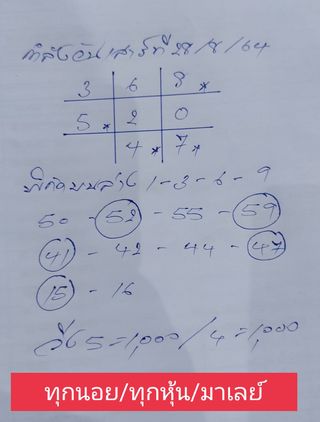 กำลังวันเสาร์ที่ 28/8/64
3 6 8 *
5 * 2 0
4 * 7 *
พิกัดบนล่าง 1-3-6-9
50 - 52 - 55 - 59
41 - 42 - 44 - 47
15 - 16
วิ่ง 5=1,000/4=1,000
ทุกนอย/ทุกหุ้น/มาเลย์